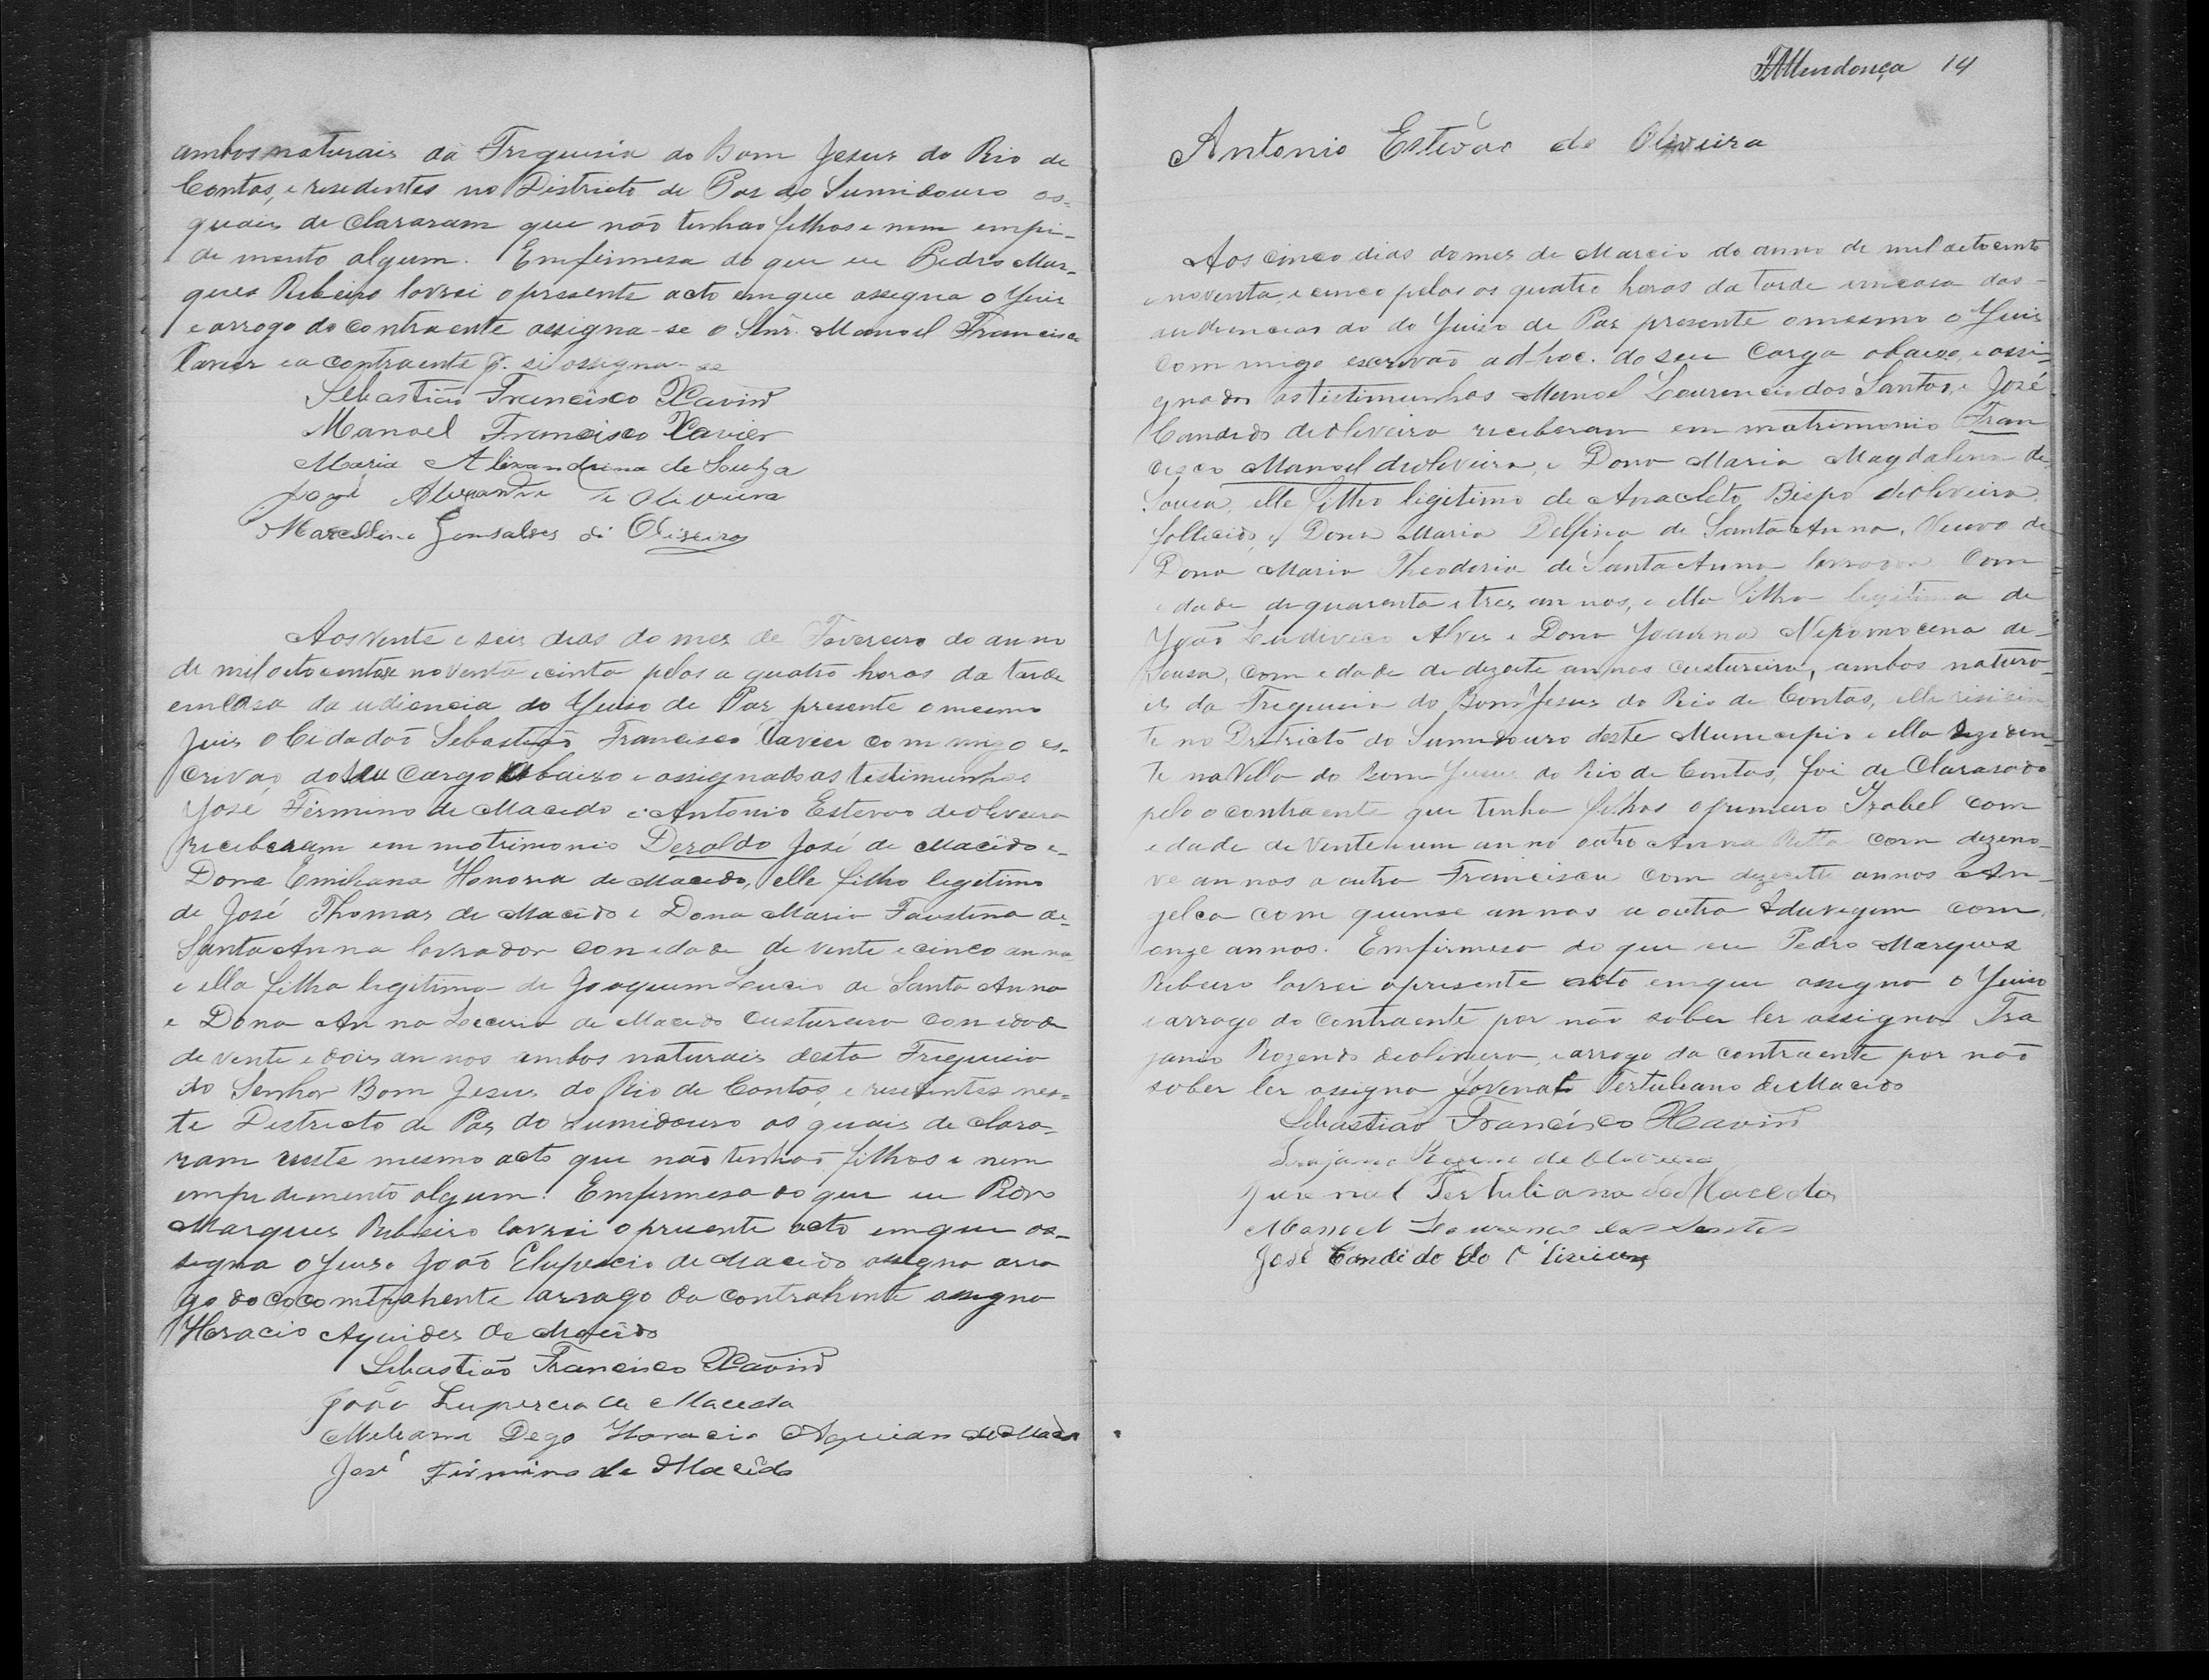 ambos naturais da Friguisia do Bom Jesus do Rio de
Contas, e residentes no Districto de Paz do Sumidouro os
quais de clararam que não tinhão filhos e nem empi-
di mento algum. Emfirmesa do que eu Pedro Mar-
ques Ribeiro lavrei o presente acto em que assigna o Juis
e arrogo do contraente assigna-se o Snr. Manoel Francisco
Xavier e a contraente p. si assigna-se
Sebastião Francisco Xavier
Manoel Francisco Xavier
Maria Alixandrina de Souza
José Alexandre de Oliveira
Marcellino Gonsalves di Oliveira
Aos vente e seis dias do mes de Fevereiro do anno
de mil oito centos e noventa e cinco pelas a quatro horas da tarde
em casa da udiencia do Juiso de Paz presente o mesmo
Juis o Cidadaõ Sebastião Francisco Xavier com migo es-
crivaõ do seu cargo abaixo e assignados as testimunhas
José Firmino de Macedo e Antonio Estevao de oliveira
receberam em matrimonio Deraldo José de Macêdo e
Dona Emiliana Honoria de Macedo, elle filho legetimo
de José Thomas de Macêdo e Dona Maria Faustina de
Santa Anna lavrador com edade de vente e cinco anno
e ella filha legitima de Joaquim Lucio de Santa Anna
e Dona An na de Macedo custureira com edade
de vente e dois an nos ambos naturais desta Friguisia
do Senhor Bom Jesus do Rio de Contas, e residentes nes-
te Destricto de Paz do Sumidouro os quais de clara-
ram neste mesmo acto que não tinhaõ filhos e nem
empedimento algum. Emfirmesa do que eu Pedro
Marques Ribeiro lavrei o presente acto em que as-
signa o Juiso João de Macedo assigna arro
go do cocontrahente arrogo da contrahente assigna
Horacio Aquides de Macêdo
Sebastião Francisco Xavier
João Lupercio de Macedo
Horacio
José Firmino de Macêdo
FAMendonça 14
Antonio Estevão de Oliveira
Aos cinco dias do mes de Marcio do anno de mil oito cento
e noventa, e cinco pelas os quatro horas da tarde em casa das
audiencias do do Juiso de Paz presente o mesmo o Juis
com migo escrivão ad hoc. do seu Cargo abaixo, e assi-
gnados as tistimunhas Manoel Lourencio dos Santos, e José
Candido de oliveira receberam em matrimonio Fran
cisco Manoel de oliveira, e Dona Maria Magdalena de
Sousa, elle filho ligitimo de Anacleto Bispo de oliveira
fallicido, e Dona Maria Delfina de Santa Anna, Viuvo de
Dona Maria Theodoria de Santa Anna lavrador com
edade de quarenta e tres annos, e ella filha legitima de
João Ludivico Alves e Dona Nepomocena de
Sousa, com edade de dezoito annos custureira, ambos natura-
is da Friguisia do Bom Jesus do Rio de Contas, elle risiden
te no Districto do Sumidouro deste Municipio e ella reziden-
te na Villa do Bom Jesus do Rio de Contas, foi de Clarado
pelo o contraente que tinha filhos o primeiro Izabel com
edade de vente e um anno outro Anna Ritta com dezeno-
ve annos a outra Francisca com dezecette annos An-
gelca com quinse annos a outra Eduvegem com
onze annos. Emfirmesa do que eu Pedro Marques
Ribeiro lavrei o presente acto em que assigna o Juiso
e arrogo do contraente por não saber ler assigna Tra
jano Rozendo de oliveira, e arrogo da contraente por não
saber ler assigna Tertuliano de Macedo
Sebastião Francisco Xavier
Trajano de Oliveira
Juvenal Tertuliano de Macedo
Manoel Lourenço dos Santos
José Candido de Oliveira